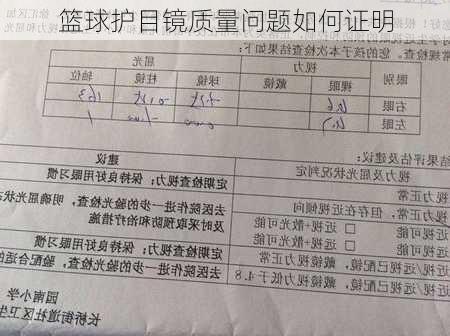 篮球护目镜质量问题如何证明
常规检查。您的孩子本次检查结果如下:
眼别 视力 屈光
裸眼 戴镜 球镜 柱镜 轴位
右眼 0.6 163
左眼 0.7
结果评估及建议:
视力及屈光状况判定 建议
视力正常 定期检查视力;保持良好用眼习惯
视力正常,但存在近视倾向 去医院作进一步的验光检查,明确屈光状
□ 近视-散光可能 及时采取预防和治疗措施
□ 远视-散光可能
近视/远视已配镜,戴镜视力正常 定期检查视力;保持良好用眼习惯
近视/远视已配镜,戴镜视力低于4.8 去医院作进一步的验光检查,验配合适的
园南小学
长桥街道社区卫生